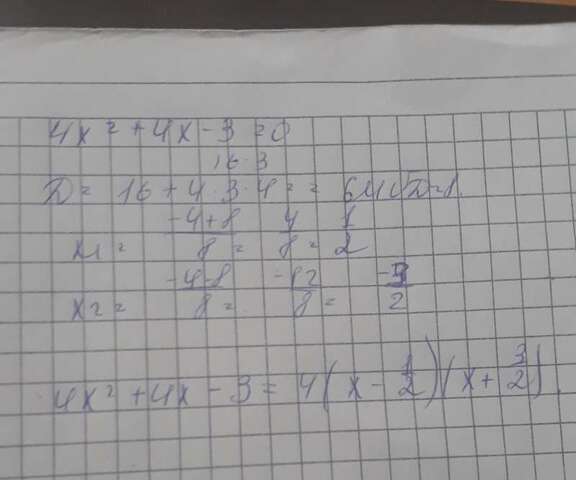 4x² + 4x - 3 = 0
16·3
D = 16 + 4·3·4 = = 64 √D = 8
x1 = -4+8/8 = 4/8 = 1/2
x2 = -4-8/8 = -12/8 = -3/2
4x² + 4x - 3 = 4(x - 1/2)(x + 3/2)